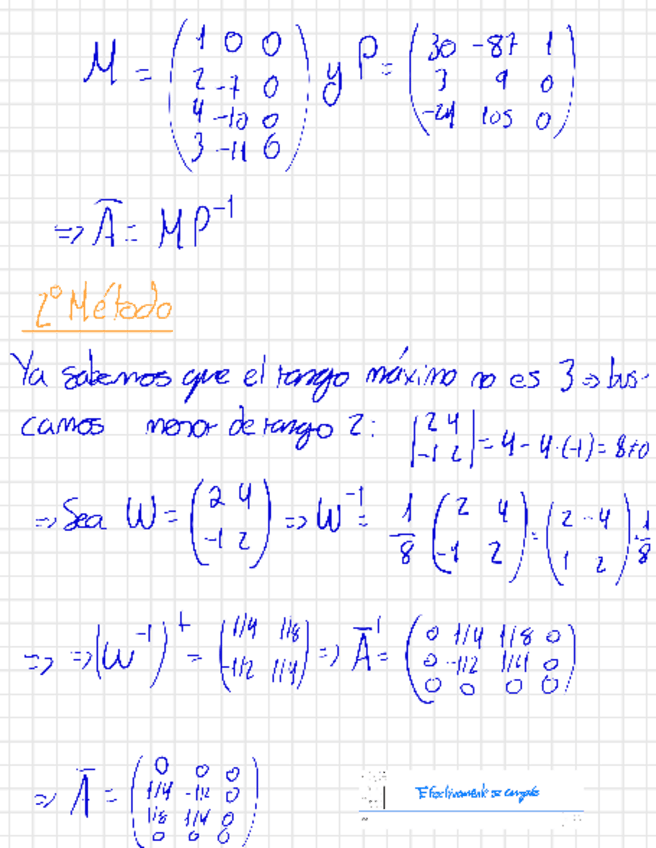 M = (1 0 0; 2 -7 0; 4 -10 0; 3 -11 0) y P = (30 -87 1; 3 9 0; -24 105 0)
=> Ā = MP⁻¹
2º Método
Ya sabemos que el rango máximo no es 3 => bus-
camos menor de rango 2: |2 4; -1 2| = 4 - 4·(-1) = 8≠0
=> Sea W = (2 4; -1 2) => W⁻¹ = 1/8 (2 4; -1 2) = (2 -4; 1 2) · 1/8
=> => (W⁻¹)ᵗ = (1/4 1/8; -1/2 1/4) => Ā' = (0 1/4 1/8 0; 0 -1/2 1/4 0; 0 0 0 0)
=> Ā = (0 0 0; 1/4 -1/2 0; 1/8 1/4 0; 0 0 0)
Efectivamente se cumple